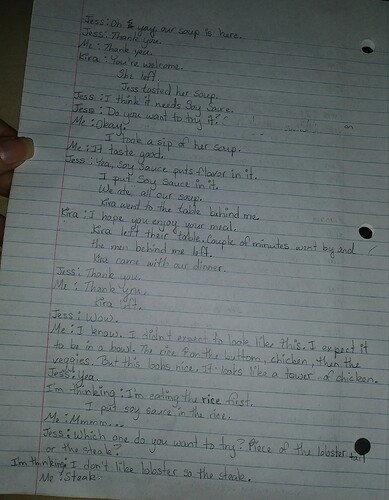 Jess: Oh yay our soup is here.
Jess: Thank you.
Me: Thank you.
Kira: You're welcome.
She left.
Jess tasted her soup.
Jess: I think it needs soy sauce.
Jess: Do you want to try it?
Me: Okay.
I took a sip of her soup.
Me: It taste good.
Jess: Yea, soy sauce puts flavor in it.
I put soy sauce in it.
We ate all our soup.
Kira went to the table behind me.
Kira: I hope you enjoy your meal.
Kira left their table. Couple of minutes went by and
the men behind me left.
Kira came with our dinner.
Jess: Thank you.
Me: Thank you.
Kira left.
Jess: Wow.
Me: I know. I didn't expect to look like this. I expect it
to be in a bowl. The rice on the buttom, chicken, then the
veggies. But this looks nice. It looks like a tower of chicken.
Jess: Yea.
I'm thinking: I'm eating the rice first.
I put soy sauce in the rice.
Me: Mmmm...
Jess: Which one do you want to try? Piece of the lobster tail
or the steak.
I'm thinking: I don't like lobster so the steak.
Me: Steak.